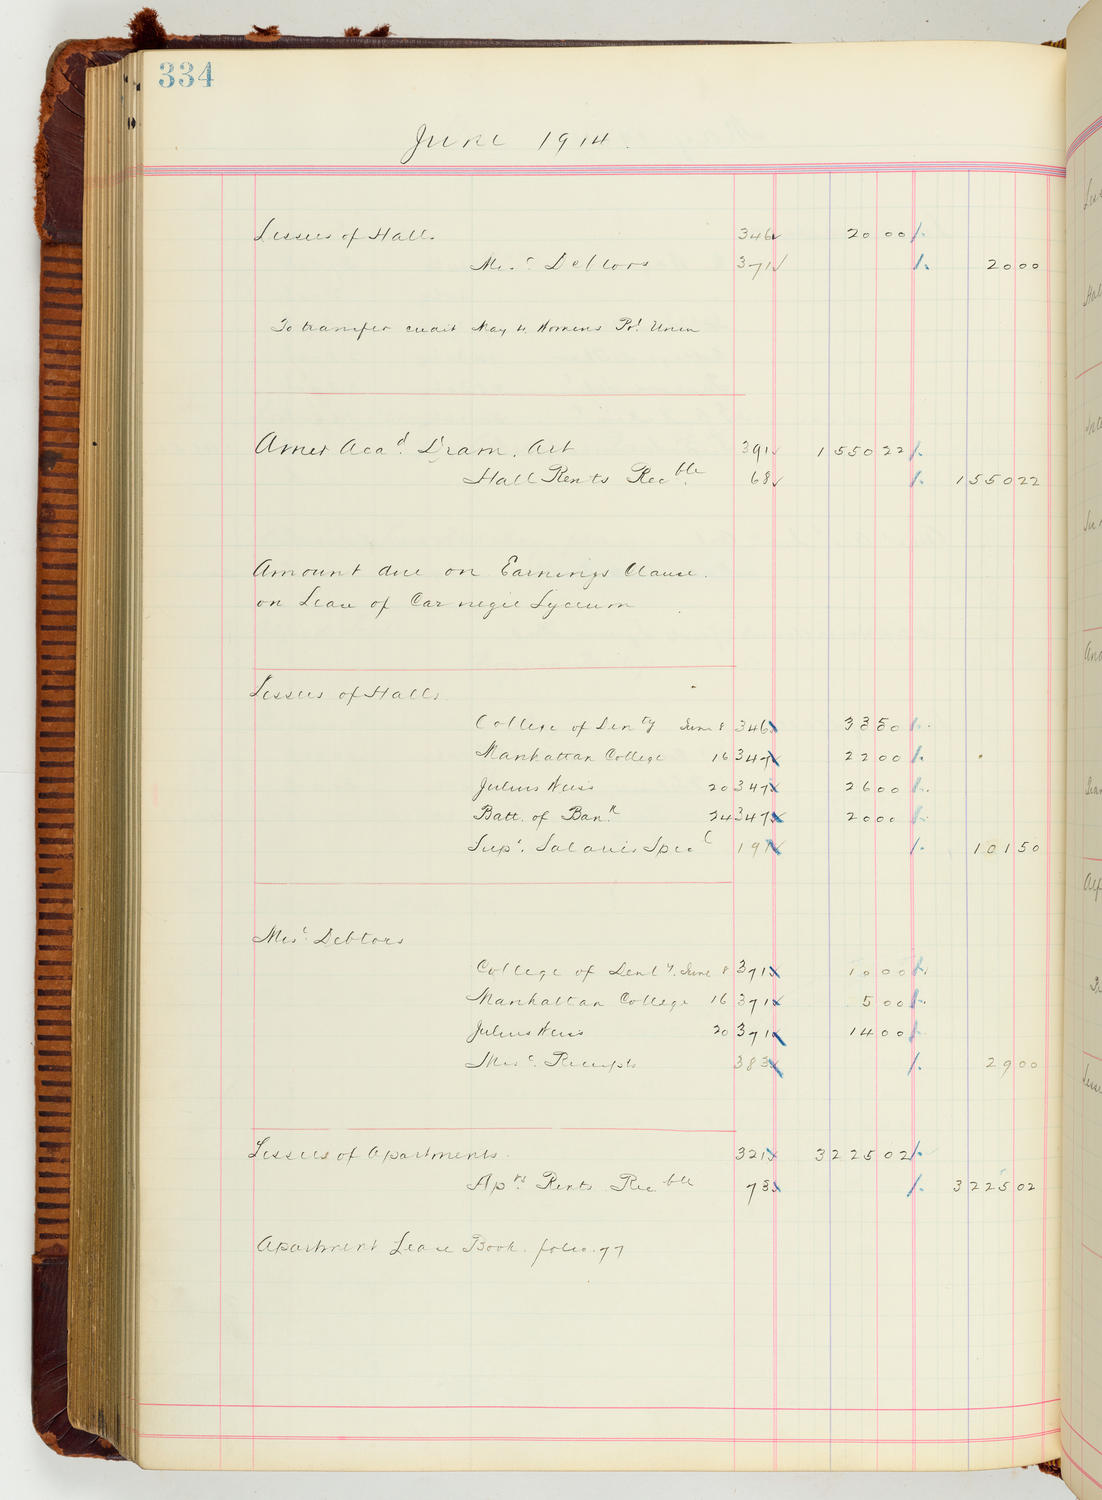 334
June 1914.
Lessees of Halls 346 20 00
Misc Debtors 371 20 00
To transfer credit May 4. Womens Pol Union
Amer Acad. Dram. Art 391 1550 22
Hall Rents Recble 68 1550 22
Amount due on Earnings Clause
on Lease of Carnegie Lyceum
Lessees of Halls
College of Denty June 8 346 33 50
Manhattan College 16 347 22 00
Julius Weiss 20 347 26 00
Batt. of Ban. 24 347 20 00
Supt. Salaries Specl 191 101 50
Misc Debtors
College of Denty. June 8 371 10 00
Manhattan College 16 371 5 00
Julius Weiss 20 371 14 00
Misc. Receipts 383 29 00
Lessees of Apartments 321 3225 02
Apts Rents Recble 73 3225 02
Apartment Lease Book. folio. 77